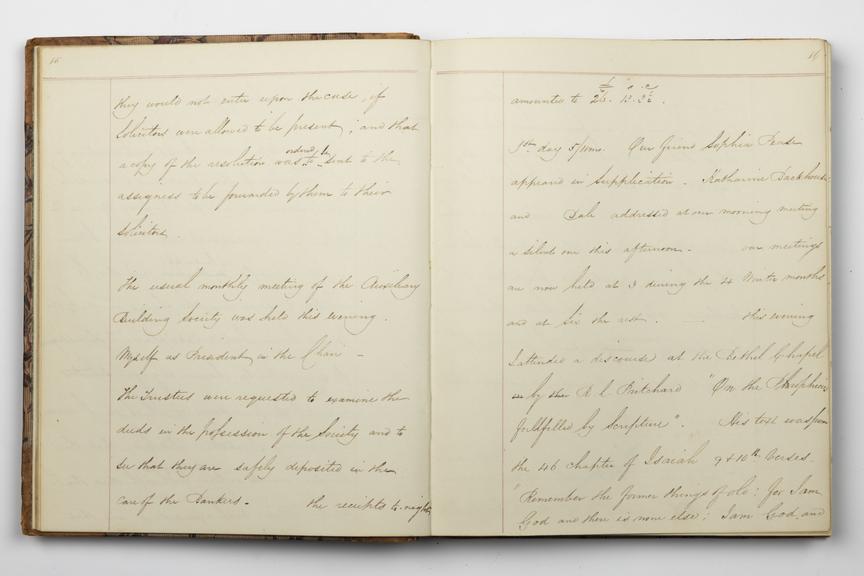 16
they would not enter upon the case, if
Solicitors were allowed to be present; and that
ordered be
a copy of the resolution was to sent to the
assignees to be forwarded by them to their
Solicitors.
The usual monthly meeting of the Auxiliary
Building Society was held this evening.
Myself as President in the Chair -
The Trustees were requested to examine the
deeds in the possession of the Society and to
see that they are safely deposited in the
care of the Bankers - the receipts to-night
16
amounted to
1st day 5/10mo. Our friend Sophia Pease
appeared in Supplication. Katharine Backhouse
and Dale addressed at our morning meeting
a silent one this afternoon - our meetings
are now held at 3 during the 4 Winter months
and at Six the rest. this evening
I attended a discourse at the Bethel Chapel
by R L Pritchard "On the
fulfilled by Scripture". His text was from
the 46 chapter of Isaiah 9 & 10th Verses.
"Remember the former things of old: for I am
God and there is none else; I am God, and